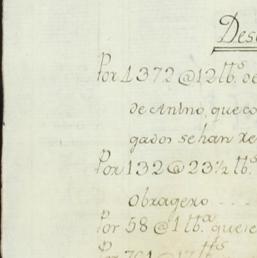 Des
Por 1372@12 lbs. de
de Anino, que co
gados se han re
Por 132@23½ lbs.
Obragero - - -
Por 58@1 lba. que
Por 701@17 lbs